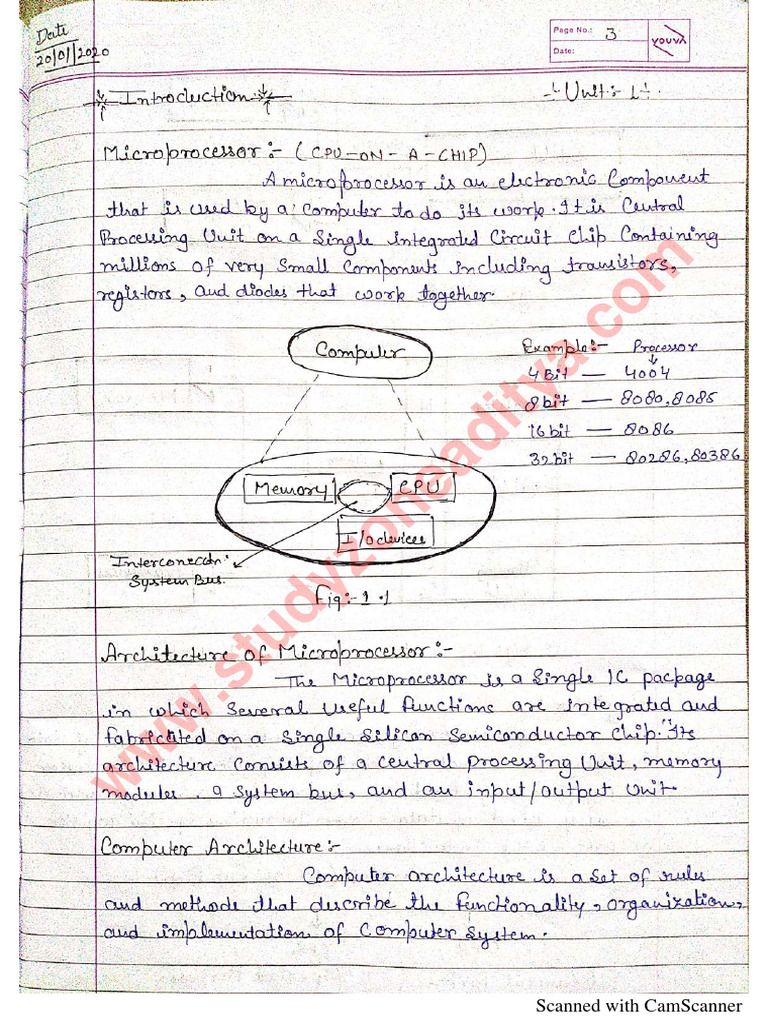 Date
20/01/2020
Page No.: 3
Date:
YOUVA
Introduction
Unit:- 1
Microprocessor :- (CPU-ON-A-CHIP)
A microprocessor is an electronic component
that is used by a computer to do its work. It is Central
Processing Unit on a single integrated Circuit Chip Containing
millions of very small components including transistors,
registors, and diodes that work together.
Computer
Example:- Processor
4 Bit — 4004
8 bit — 8080, 8085
16 bit — 8086
32 bit — 80286, 80386
Memory
CPU
I/o devices
Interconecon:
System Bus.
Fig:-1.1
Architecture of Microprocessor :-
The Microprocessor is a single IC pacpage
in which several useful functions are integrated and
fabricated on a single silicon semiconductor chip. Its
architecture consists of a central processing Unit, memory
modules, a system bus, and an input/output unit
Computer Architecture :-
Computer architecture is a set of rules
and methode that describe the functionality, organization,
and implementation of computer system.
www.studyzoneaditya.com
Scanned with CamScanner